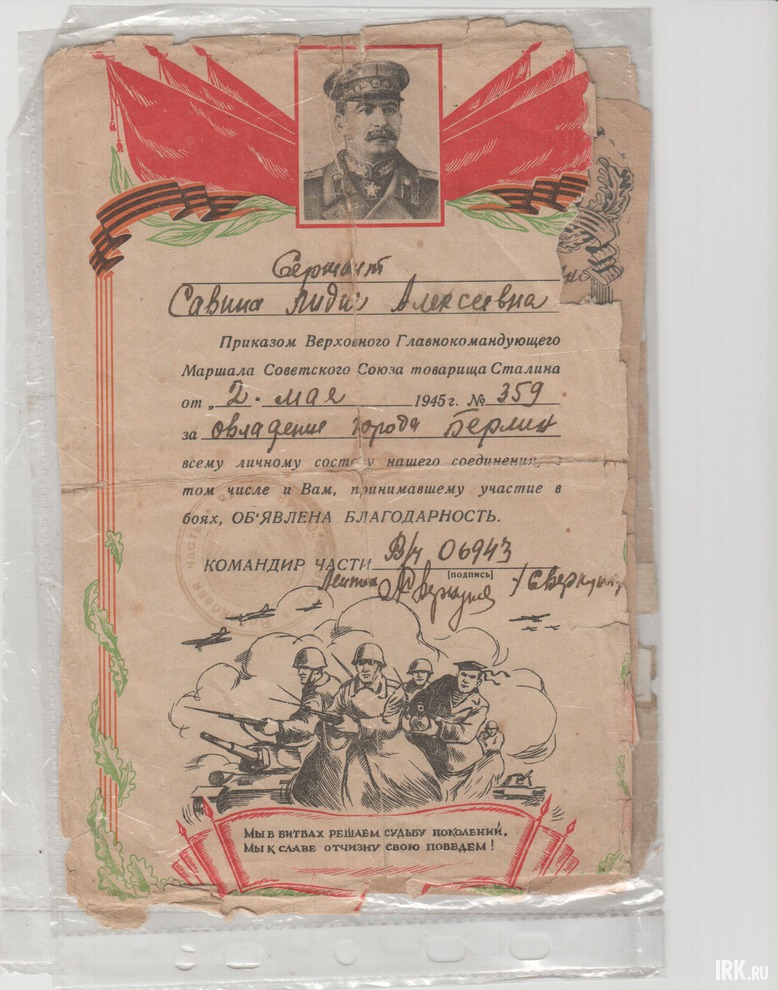 Сержант
Савина Лидия Алексеевна
Приказом Верховного Главнокомандующего
Маршала Советского Союза товарища Сталина
от „2. мая 1945 г. № 359
за овладение города Берлин
всему личному составу нашего соединения, в
том числе и Вам, принимавшему участие в
боях, ОБ'ЯВЛЕНА БЛАГОДАРНОСТЬ.
КОМАНДИР ЧАСТИ В/ч 06943
[подпись]
МЫ В БИТВАХ РЕШАЕМ СУДЬБУ ПОКОЛЕНИЙ,
МЫ К СЛАВЕ ОТЧИЗНУ СВОЮ ПОВЕДЕМ!
IRK.RU